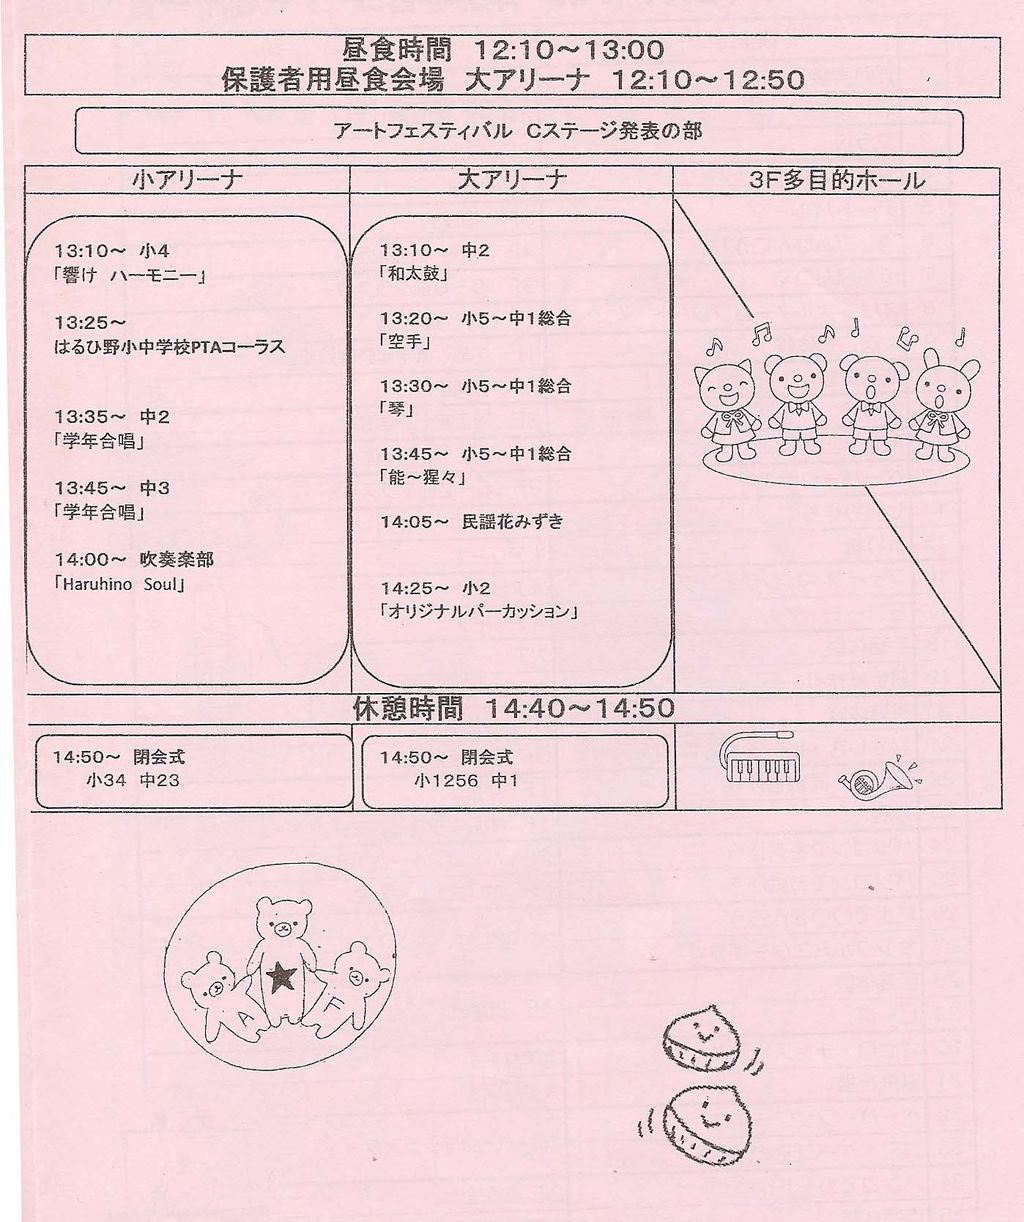 昼食時間　12:10～13:00
保護者用昼食会場　大アリーナ　12:10～12:50
アートフェスティバル　Cステージ発表の部
小アリーナ
13:10～　小4
「響け　ハーモニー」
13:25～
はるひ野小中学校PTAコーラス
13:35～　中2
「学年合唱」
13:45～　中3
「学年合唱」
14:00～　吹奏楽部
「Haruhino Soul」
大アリーナ
13:10～　中2
「和太鼓」
13:20～　小5～中1総合
「空手」
13:30～　小5～中1総合
「琴」
13:45～　小5～中1総合
「能～猩々」
14:05～　民謡花みずき
14:25～　小2
「オリジナルパーカッション」
3F多目的ホール
休憩時間　14:40～14:50
14:50～　閉会式
小34　中23
14:50～　閉会式
小1256　中1
A F